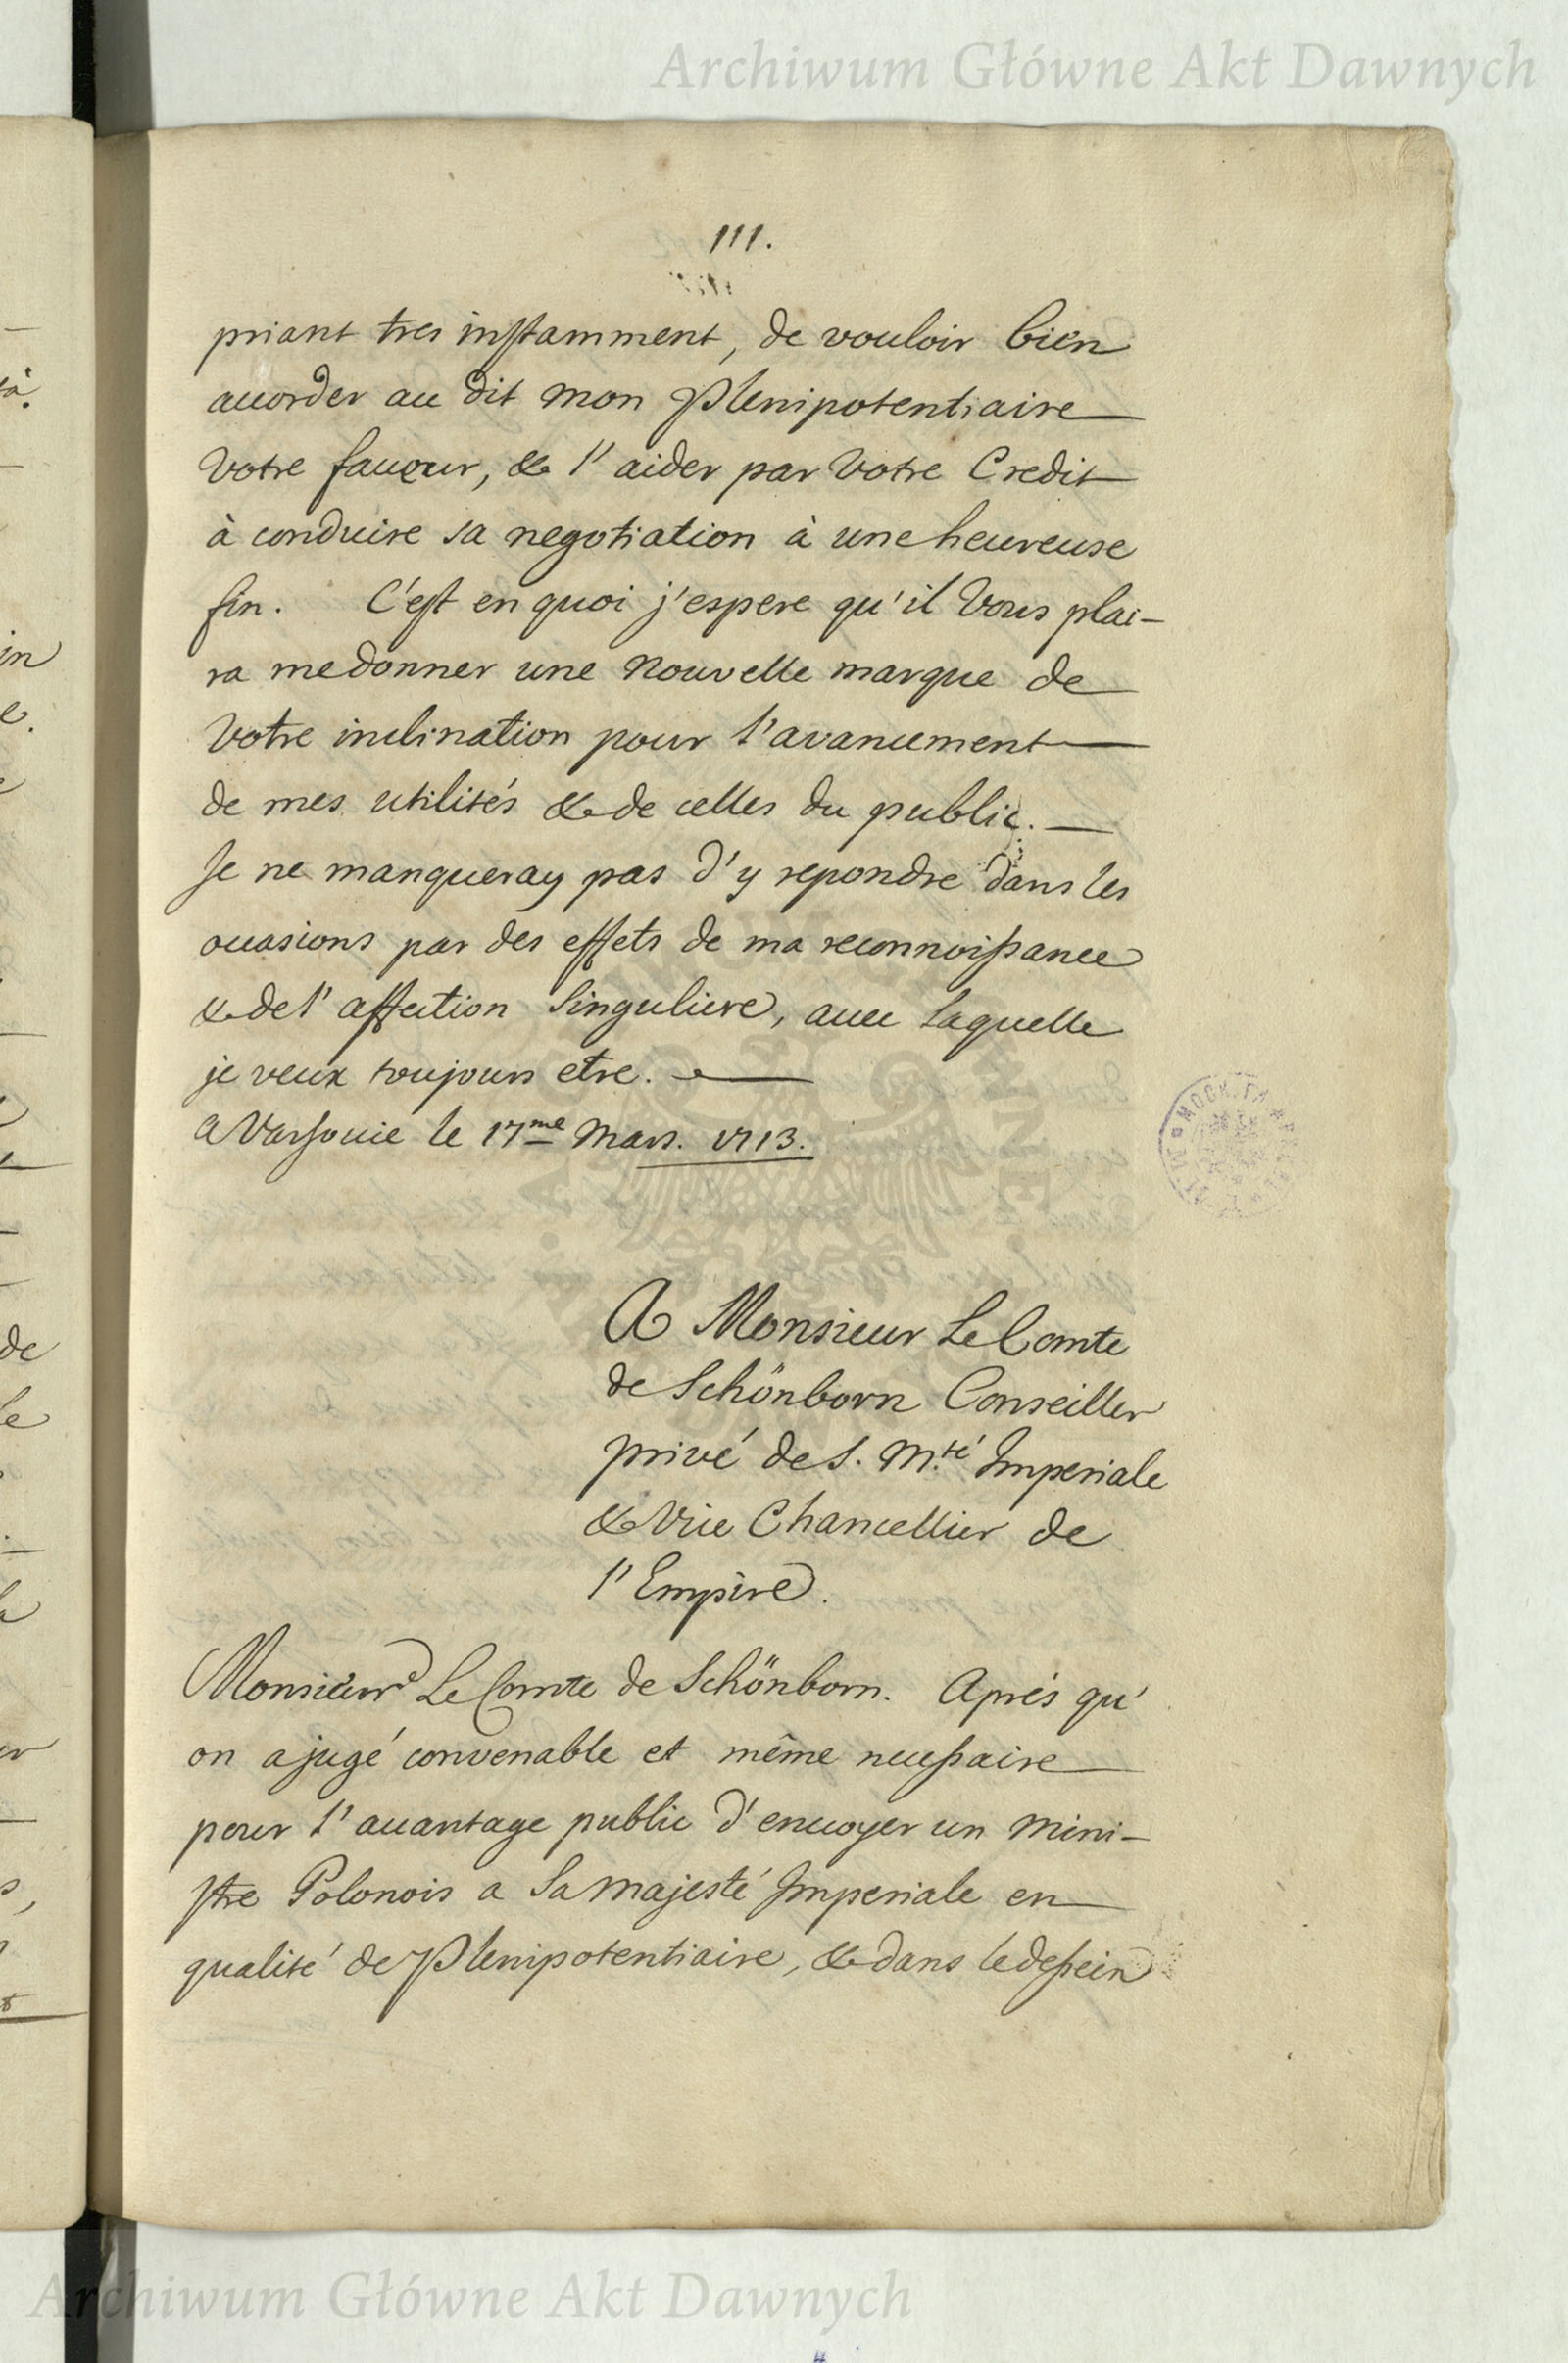 Archiwum Główne Akt Dawnych
111.
priant tres instamment, de vouloir bien
accorder au dit mon Plenipotentiaire
Votre faueur, & l'aider par Votre Credit
à conduire sa negotiation à une heureuse
fin. C'est en quoi j'espere qu'il Vous plai-
ra me donner une nouvelle marque de
Votre inclination pour l'avancement
de mes utilités & de celles du public.
Je ne manqueray pas d'y repondre dans les
occasions par des effets de ma reconnoissance
& de l'affection singuliere, avec laquelle
je veux toujours etre.
a Varsovie le 17me Mars. 1713.
A Monsieur Le Comte
de Schönborn Conseiller
privé de S. M.té Imperiale
& Vice Chancellier de
l'Empire.
Monsieur Le Comte de Schönborn. Aprés qu'
on a jugé convenable et même necessaire
pour l'auantage public d'enuoyer un Mini-
stre Polonois a Sa Majesté Imperiale en
qualité de Plenipotentiaire, & dans le dessein
Archiwum Główne Akt Dawnych